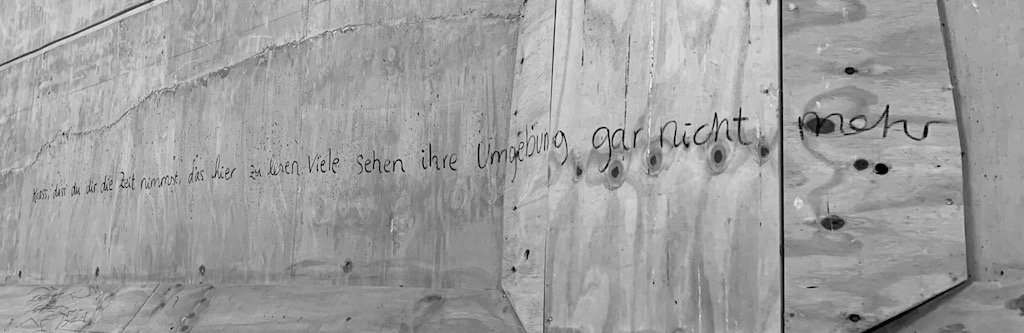 Krass, dass du dir die Zeit nimmst, das hier zu lesen. Viele sehen ihre Umgebung gar nicht mehr